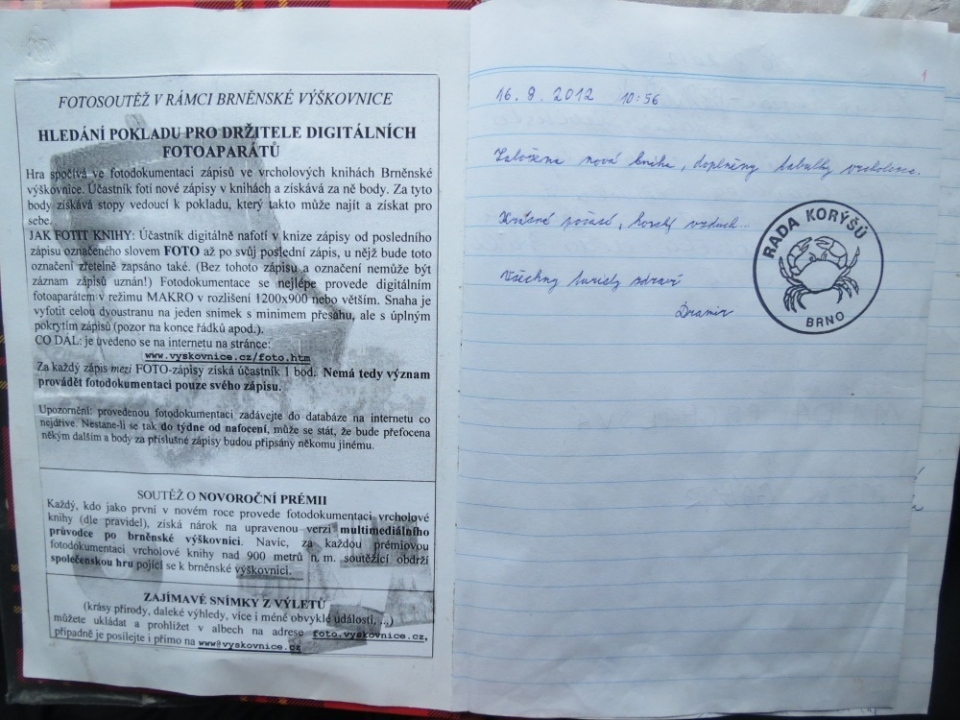 FOTOSOUTĚŽ V RÁMCI BRNĚNSKÉ VÝŠKOVNICE
HLEDÁNÍ POKLADU PRO DRŽITELE DIGITÁLNÍCH
FOTOAPARÁTŮ
Hra spočívá ve fotodokumentaci zápisů ve vrcholových knihách Brněnské
výškovnice. Účastník fotí nové zápisy v knihách a získává za ně body. Za tyto
body získává stopy vedoucí k pokladu, který takto může najít a získat pro
sebe.
JAK FOTIT KNIHY: Účastník digitálně nafotí v knize zápisy od posledního
zápisu označeného slovem FOTO až po svůj poslední zápis, u nějž bude toto
označení zřetelně zapsáno také. (Bez tohoto zápisu a označení nemůže být
záznam zápisů uznán!) Fotodokumentace se nejlépe provede digitálním
fotoaparátem v režimu MAKRO v rozlišení 1200x900 nebo větším. Snaha je
vyfotit celou dvoustranu na jeden snímek s minimem přesahu, ale s úplným
pokrytím zápisů (pozor na konce řádků apod.).
CO DÁL: je uvedeno se na internetu na stránce:
www.vyskovnice.cz/foto.htm
Za každý zápis mezi FOTO-zápisy získá účastník 1 bod. Nemá tedy význam
provádět fotodokumentaci pouze svého zápisu.
Upozornění: provedenou fotodokumentaci zadávejte do databáze na internetu co
nejdříve. Nestane-li se tak do týdne od nafocení, může se stát, že bude přefocena
někým dalším a body za příslušné zápisy budou připsány někomu jinému.
SOUTĚŽ O NOVOROČNÍ PRÉMII
Každý, kdo jako první v novém roce provede fotodokumentaci vrcholové
knihy (dle pravidel), získá nárok na upravenou verzi multimediálního
průvodce po brněnské výškovnici. Navíc, za každou prémiovou
fotodokumentaci vrcholové knihy nad 900 metrů n. m. soutěžící obdrží
společenskou hru pojící se k brněnské výškovnici.
ZAJÍMAVÉ SNÍMKY Z VÝLETŮ
(krásy přírody, daleké výhledy, více i méně obvyklé události, ...)
můžete ukládat a prohlížet v albech na adrese foto.vyskovnice.cz,
případně je posílejte i přímo na www@vyskovnice.cz
1
16. 9. 2012 10:56
Založena nová kniha, doplněny tabulky vrcholovce.
Krásné počasí, horský vzduch...
Všechny turisty zdraví
RADA KORÝŠŮ
BRNO